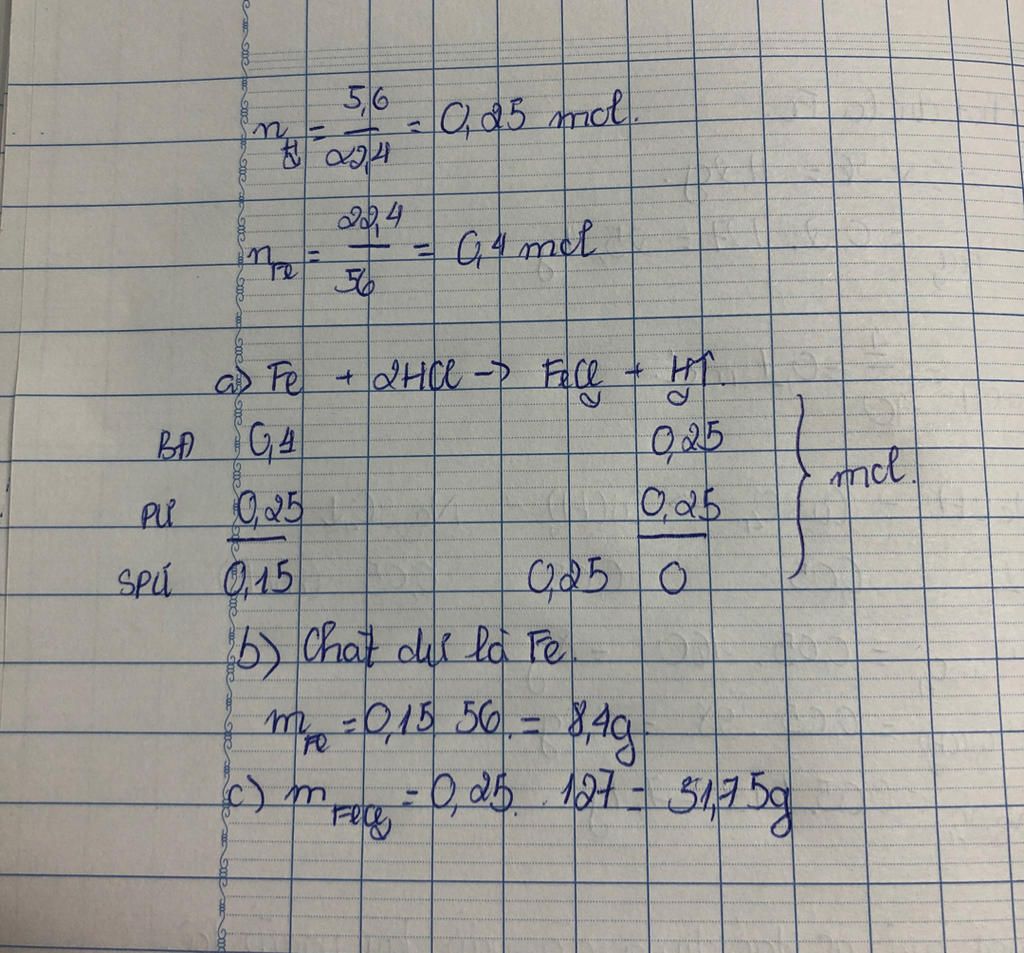 n_H₂ = 5,6/22,4 = 0,25 mol.
n_Fe = 22,4/56 = 0,4 mol
a) Fe + 2HCl → FeCl₂ + H₂↑.
BĐ 0,4 0,25
PƯ 0,25 0,25 } mol.
SPƯ 0,15 0,25 0
b) Chất dư là Fe.
m_Fe = 0,15 56. = 8,4g
c) m_FeCl₂ = 0,25 . 127 = 31,75g